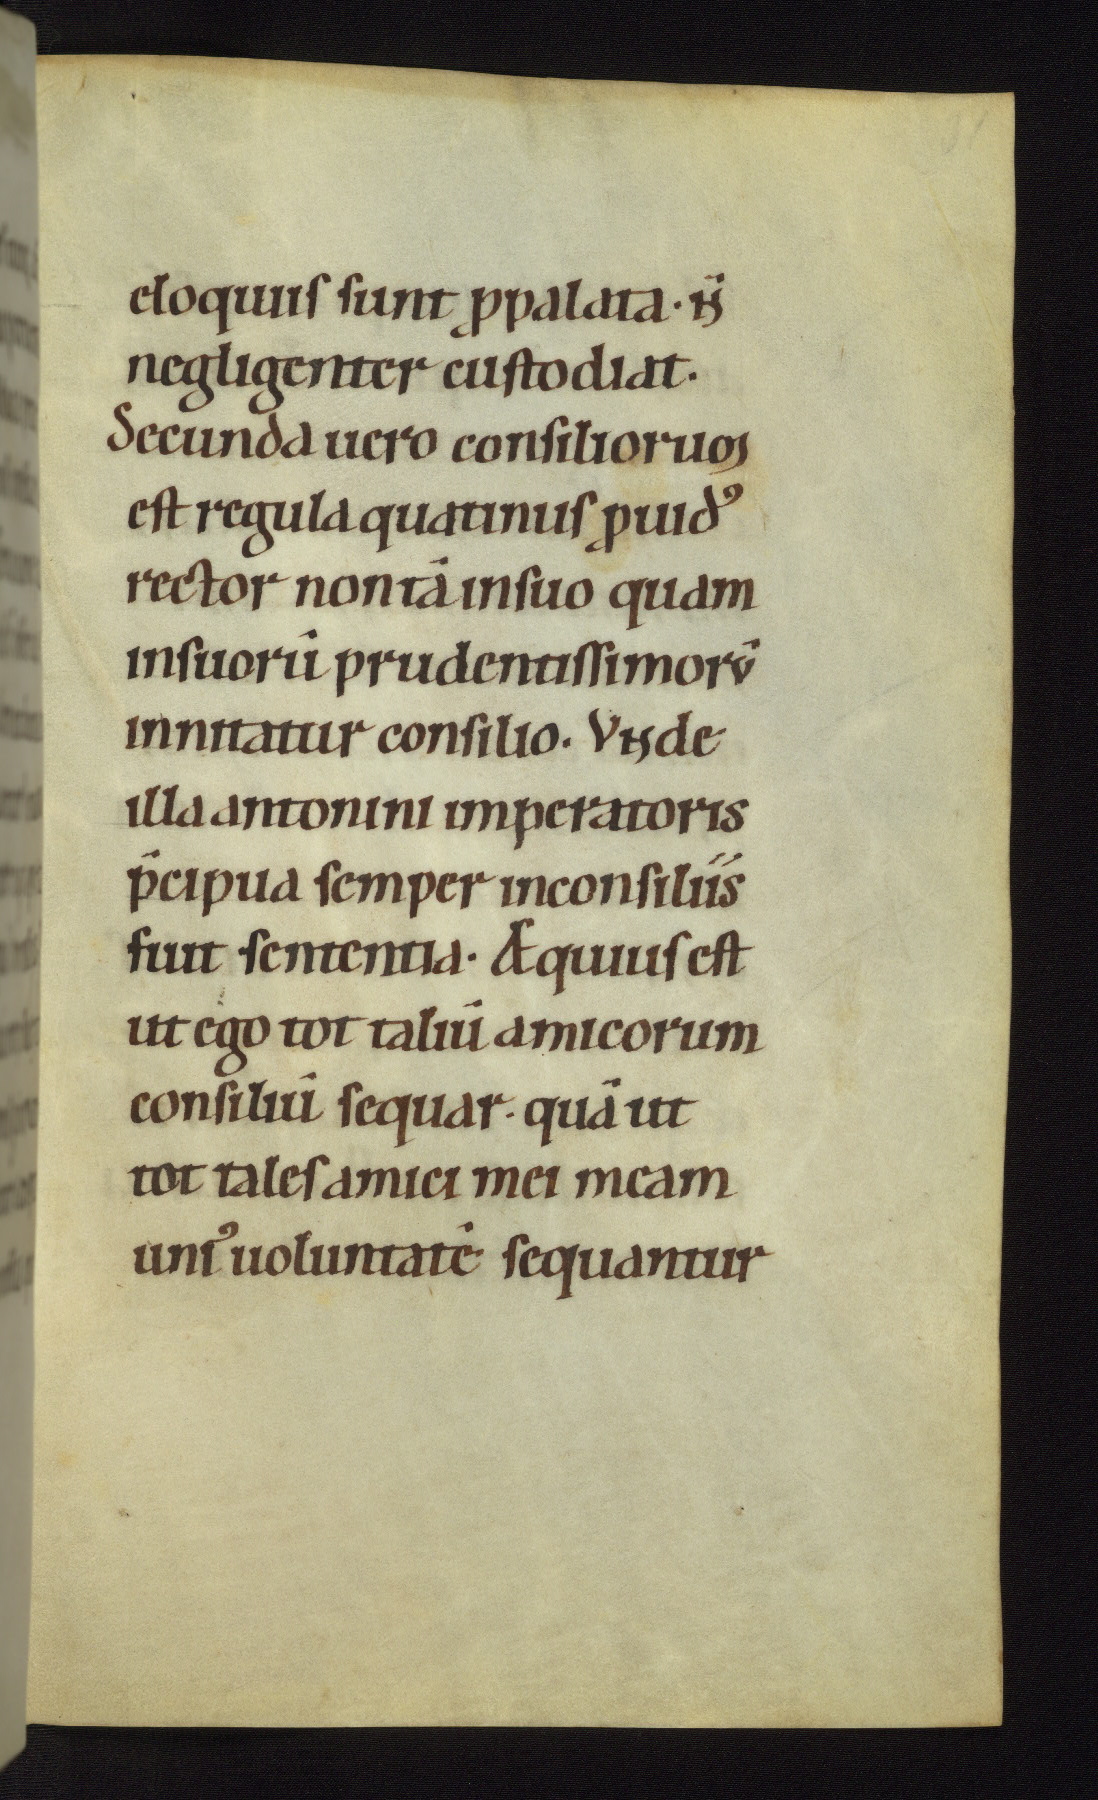 eloquiis sunt ꝓpalata· n̄
negligenter custodiat.
Secunda uero consiliorum
est regula quatinus ꝓuidꝰ
rector non tā insuo quam
insuorū prudentissimorū
innitatur consilio. Vnde
illa antonini imperatoris
p̄cipua semper inconsiliis
fuit sententia. Æquius est
ut ego tot taliū amicorum
consiliū sequar. quā ut
tot tales amici mei meam
uniꝰ uoluntatē sequantur